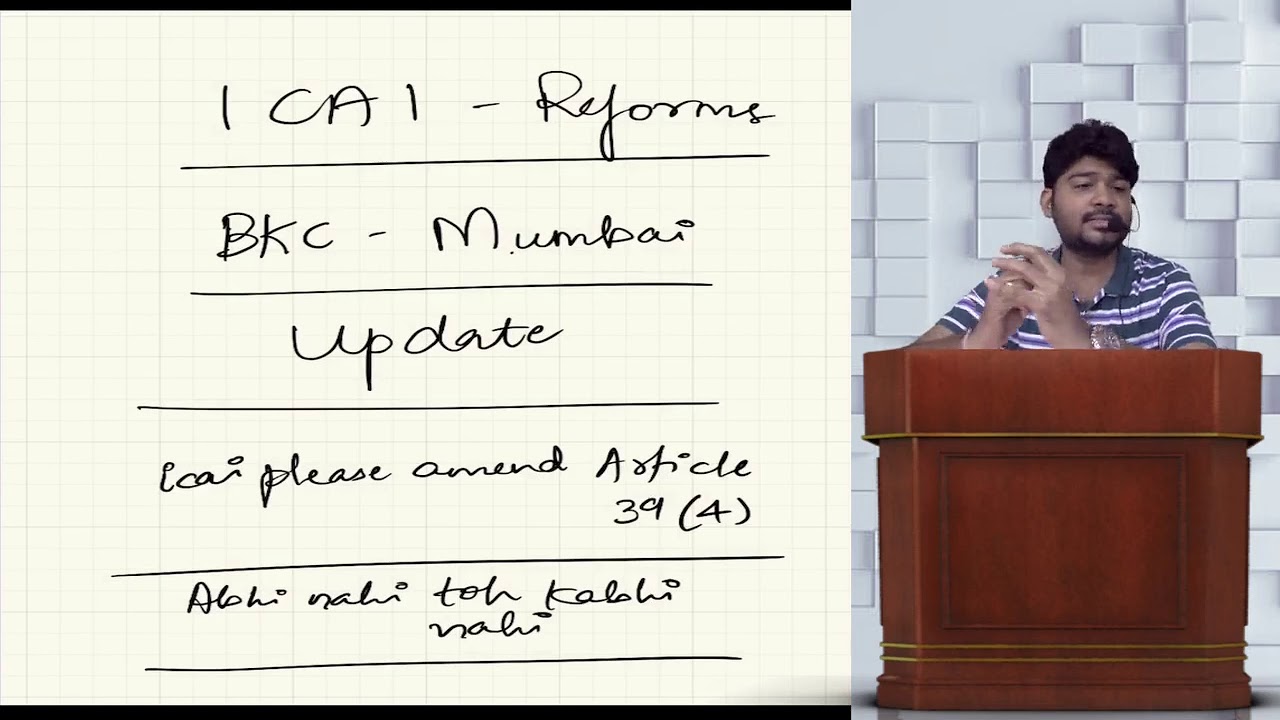 ICAI - Reforms
BKC - Mumbai
Update
icai please amend Article
39 (4)
Abhi nahi toh kabhi
nahi